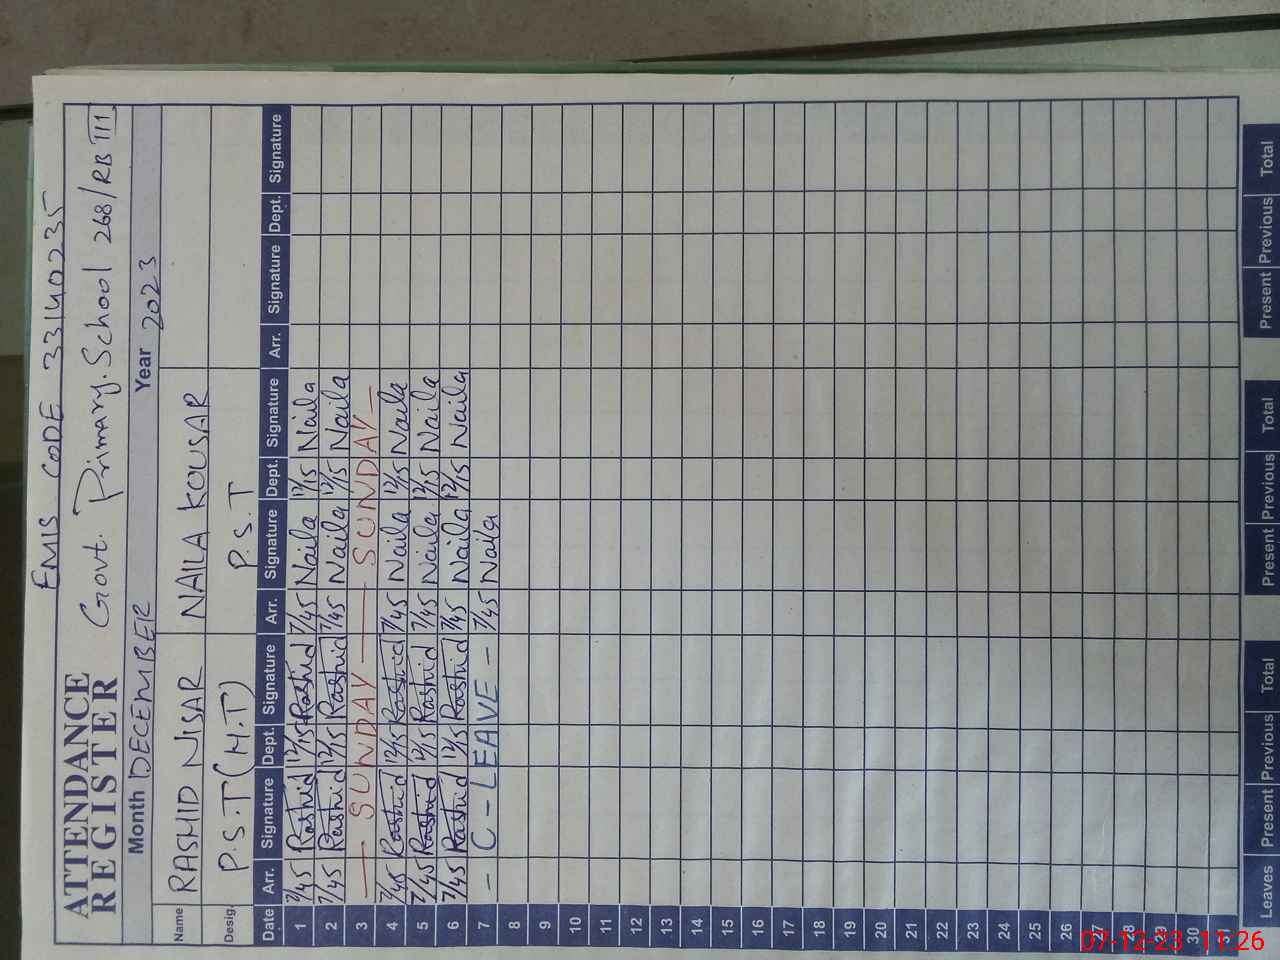 EMIS CODE 33140235
ATTENDANCE REGISTER Govt. Primary. School 268/RB III
Month DECEMBER Year 2023
Name RASHID NISAR NAILA KOUSAR
Desig. P.S.T (H.T) P.S.T
Date Arr. Signature Dept. Signature Arr. Signature Dept. Signature Arr. Signature Dept. Signature
1 7/45 Rashid 12/15 Rashid 7/45 Naila 12/15 Naila
2 7/45 Rashid 12/15 Rashid 7/45 Naila 12/15 Naila
3 — SUNDAY — SUNDAY —
4 7/45 Rashid 12/15 Rashid 7/45 Naila 12/15 Naila
5 7/45 Rashid 12/15 Rashid 7/45 Naila 12/15 Naila
6 7/45 Rashid 12/15 Rashid 7/45 Naila 12/15 Naila
7 - C - LEAVE - 7/45 Naila
8
9
10
11
12
13
14
15
16
17
18
19
20
21
22
23
24
25
26
27
28
29
30
31
Leaves Present Previous Total Present Previous Total Present Previous Total
07-12-23 11:26